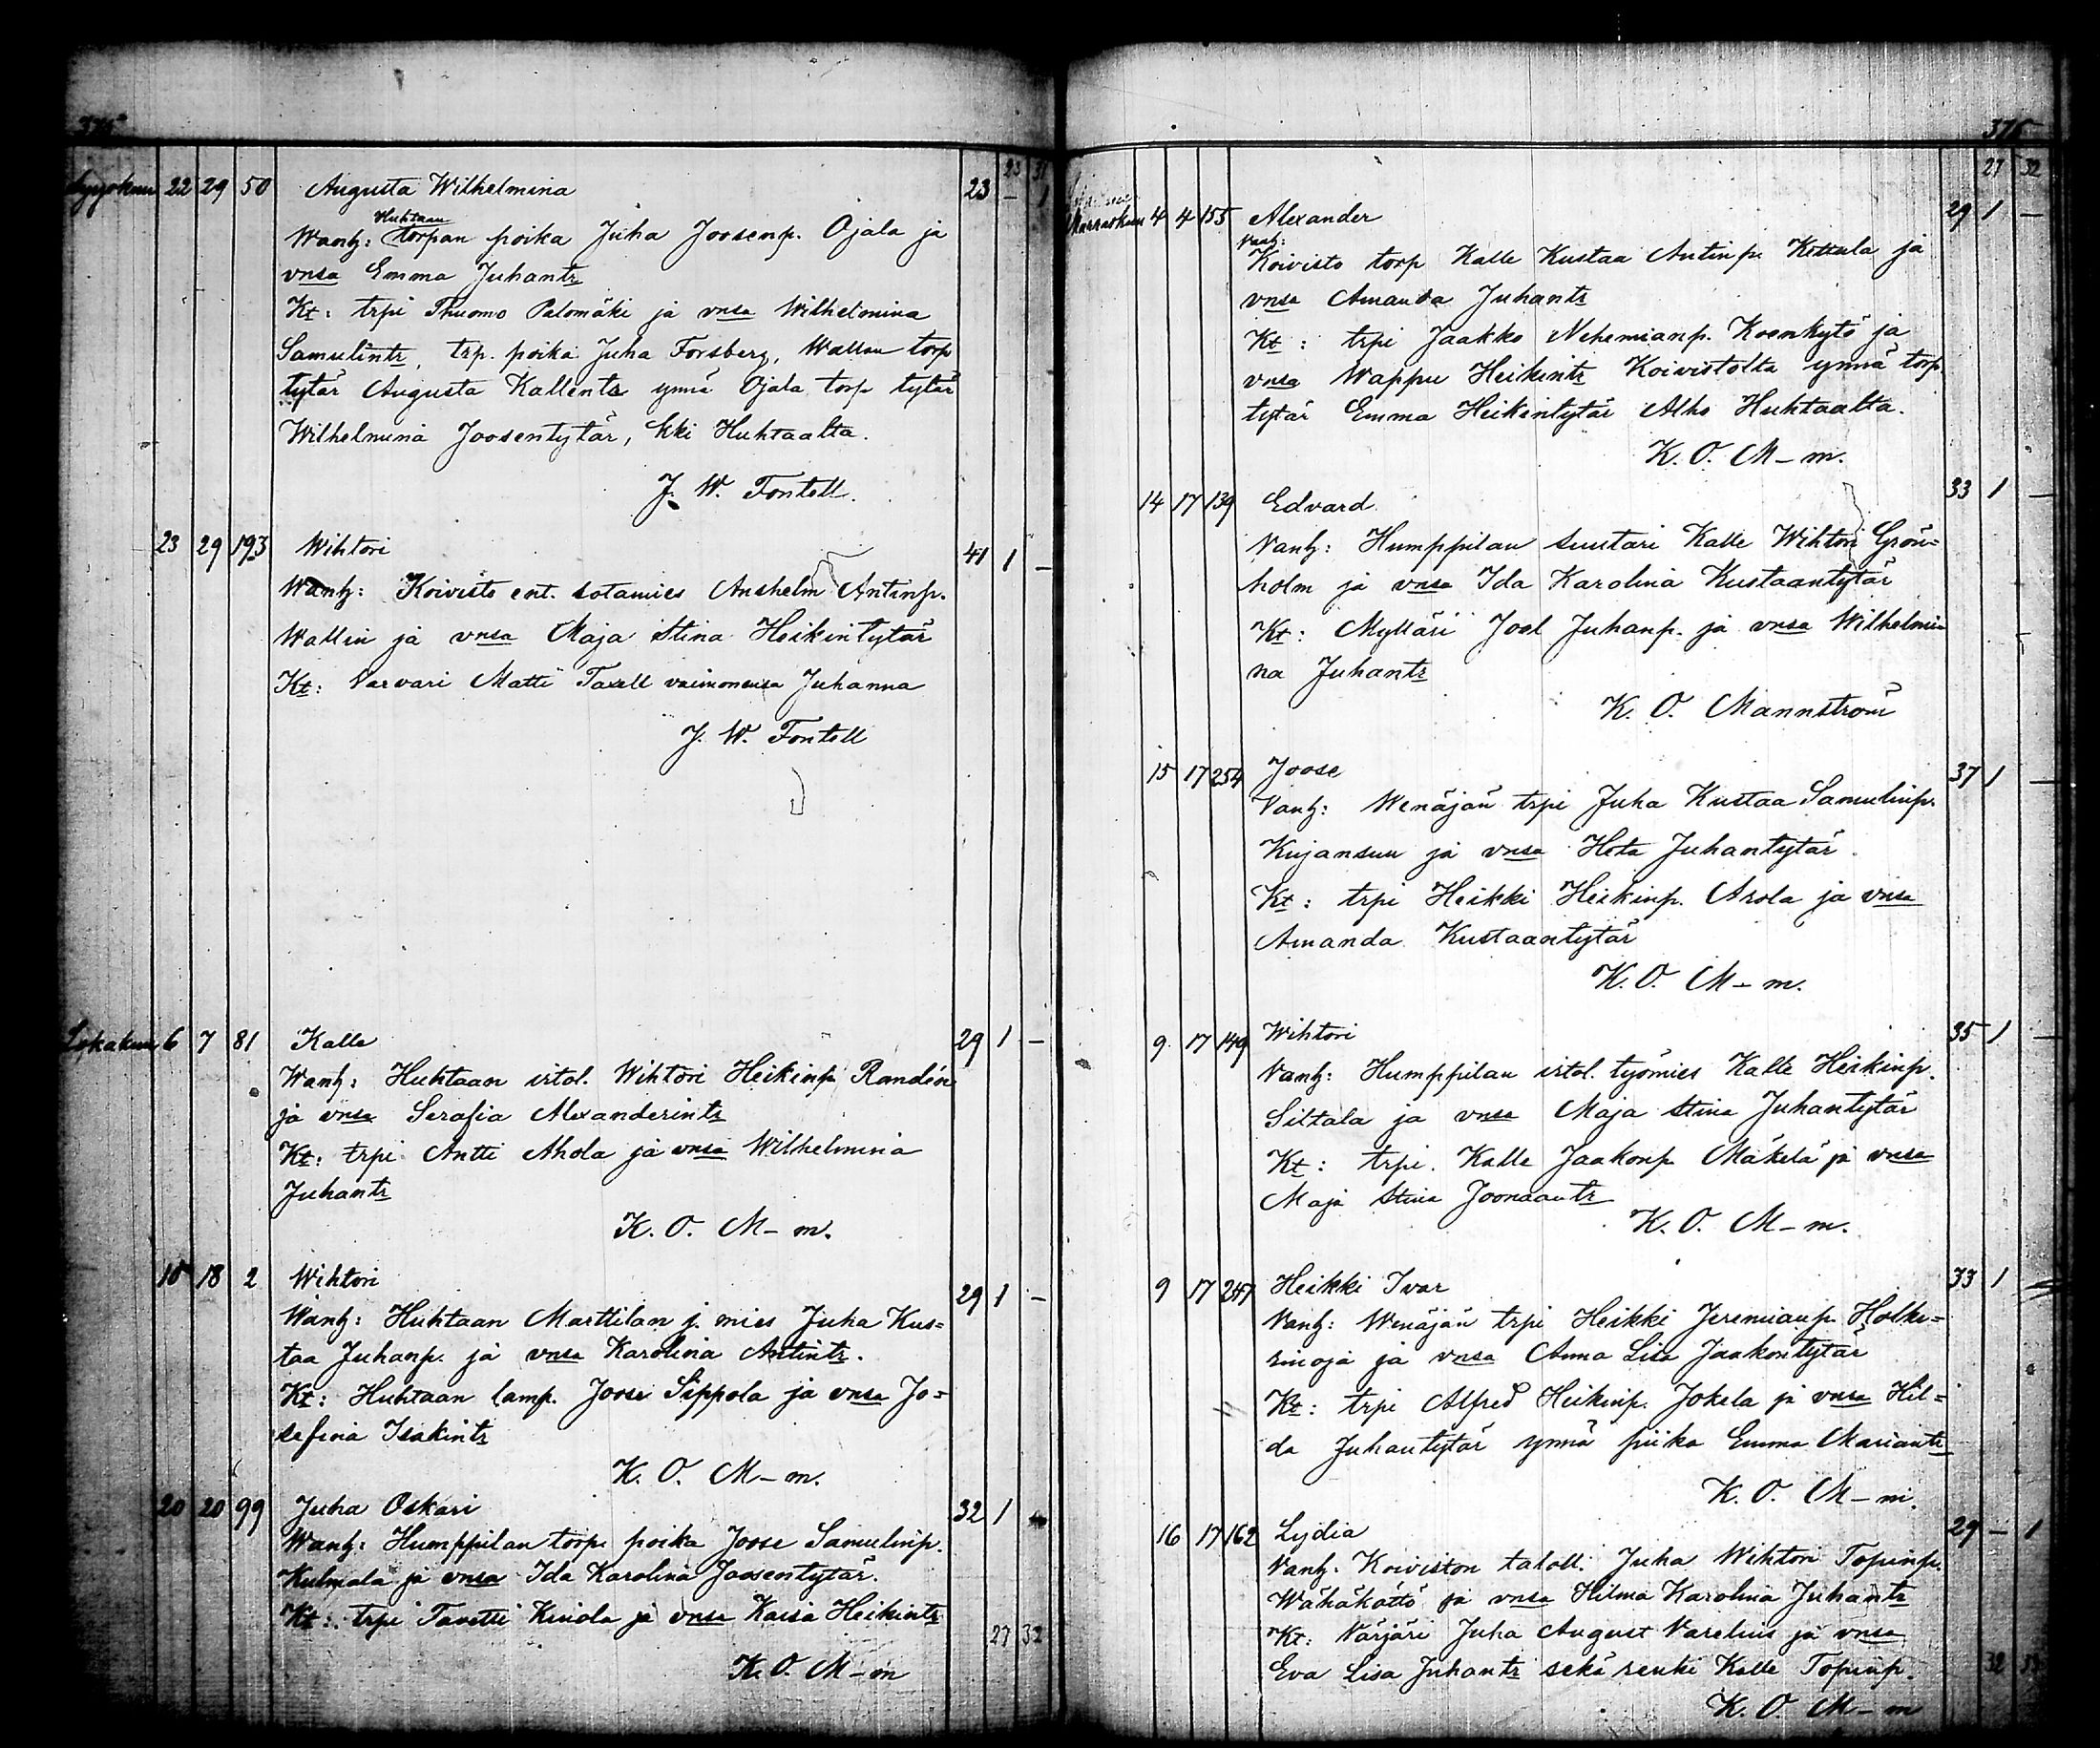 23 31
Syyskuu 22 29 50 Augusta Wilhelmina 23 — 1
Huhtaan
Wanh: torpan poika Juha Joosenp. Ojala ja
vnsa Emma Juhantr
Kt: trpi Thuomo Palomäki ja vnsa Wilhelmina
Samulintr, trp. poika Juha Forsberg, Wallan torp
tytär Augusta Kallentr ynnä Ojala torp tytär
Wilhelmina Joosentytär, kki Huhtaalta.
J. W. Fontell.
23 29 193 Wihtori 41 1 —
Wanh: Koivisto ent. sotamies Anshelm Antinp.
Wallin ja vnsa Maja Stina Heikintytär
Kt: Varvari Matti Taxell vaimonensa Juhanna
J. W. Fontell
Lokakuu 6 7 81 Kalle 29 1 —
Wanh: Huhtaan irtol. Wihtori Heikinp Randén
ja vnsa Serafia Alexanderintr
Kt: trpi Antti Ahola ja vnsa Wilhelmina
Juhantr
K. O. M–m.
18 2 Wihtori 29 1 —
Wanh: Huhtaan Marttilan j. mies Juha Kus=
taa Juhanp. ja vnsa Karolina Antintr.
Kt: Huhtaan lamp. Joose Seppola ja vnsa Jo=
sefina Isakintr
K. O. M–m.
20 20 99 Juha Oskari 32 1
Wanh: Humppilan torp. poika Joose Samulinp.
Kulmala ja vnsa Ida Karolina Joosentytär.
Kt: trpi Tavetti Kuiola ja vnsa Kaisa Heikintr
27 32
K. O. M–m
375
27 32
Marraskuu 4 4 155 Alexander 29 1 —
Vanh:
Koivisto torp Kalle Kustaa Antinp. Kettula ja
vnsa Amanda Juhantr
Kt: trpi Jaakko Nehemianp. Koenkytö ja
vnsa Wappu Heikintr Koivistolta ynnä torp
tytär Emma Heikintytär Alho Huhtaalta.
K. O. M–m.
14 17 139 Edvard 33 1 —
Vanh: Humppilan suutari Kalle Wihtori Grön=
holm ja vnsa Ida Karolina Kustaantytär
Kt: Mylläri Joel Juhanp. ja vnsa Wilhelmi
na Juhantr
K. O. Mannström
15 17 254 Joose 37 1 —
Vanh: Wenäjän trpi Juha Kustaa Samulinp.
Kujansuu ja vnsa Heta Juhantytär.
Kt: trpi Heikki Heikinp. Arola ja vnsa
Amanda Kustaantytär
K. O. M–m.
9 17 149 Wihtori 35 1 —
Vanh: Humppilan irtol. työmies Kalle Heikinp.
Siltala ja vnsa Maja Stina Juhantytär
Kt: trpi. Kalle Jaakonp Mäkelä ja vnsa
Maja Stina Joonaantr
K. O. M–m.
9 17 247 Heikki Ivar 33 1 —
Vanh: Wenäjän trpi Heikki Jeremianp. Holke=
rinoja ja vnsa Anna Lisa Jaakontytär
Kt: trpi Alfred Heikinp. Jokela ja vnsa Hil=
da Juhantytär ynnä piika Emma Mariantr
K. O. M–m.
16 17 162 Lydia 29 — 1
Vanh. Koiviston taloll. Juha Wihtori Topinp.
Wähäkättö ja vnsa Hilma Karolina Juhantr
Kt: Värjäri Juha August Varelius ja vnsa
Eva Lisa Juhantr sekä renki Kalle Topinp.
K. O. M–m